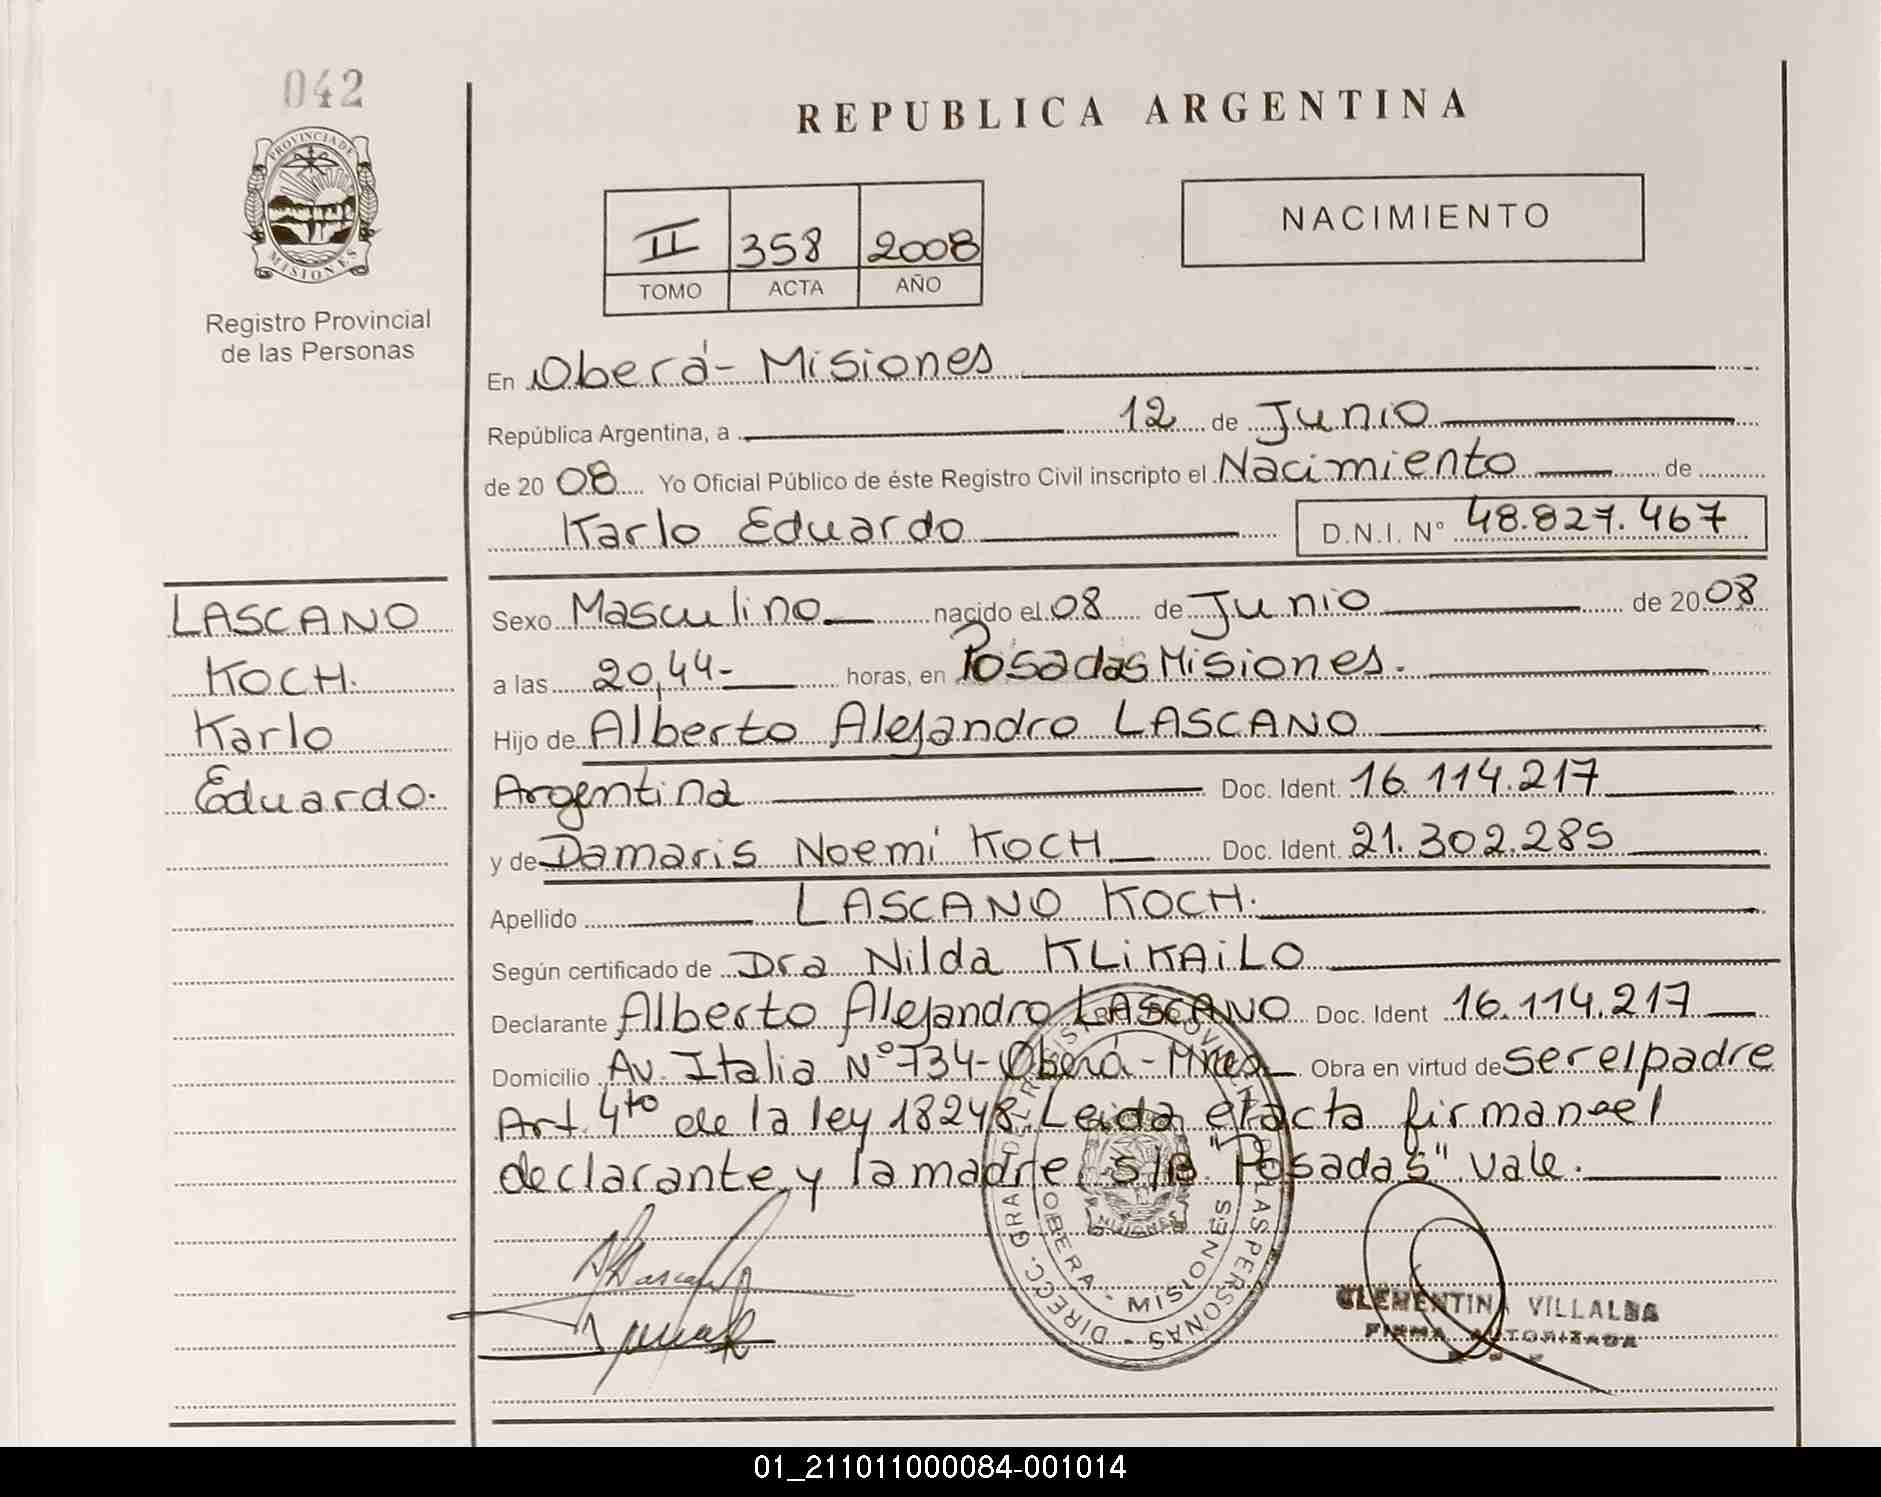 042
PROVINCIA DE
MISIONES
Registro Provincial
de las Personas
LASCANO
KOCH.
Karlo
Eduardo.
REPUBLICA ARGENTINA
II 358 2008
TOMO ACTA AÑO
NACIMIENTO
En Oberá - Misiones
República Argentina, a 12 de Junio
de 20 08 Yo Oficial Público de éste Registro Civil inscripto el Nacimiento de
Karlo Eduardo D.N.I. Nº 48.827.467
Sexo Masculino nacido el 08 de Junio de 20 08
a las 20,44- horas, en Posadas Misiones.
Hijo de Alberto Alejandro LASCANO
Argentina Doc. Ident. 16.114.217
y de Damaris Noemi KOCH Doc. Ident. 21.302.285
Apellido LASCANO KOCH.
Según certificado de Dra Nilda KLiKAiLO
Declarante Alberto Alejandro LASCANO Doc. Ident 16.114.217
Domicilio Av. Italia Nº 734- Oberá - Mnes Obra en virtud de ser el padre
Art. 4to de la ley 18248. Leida el acta firman el
declarante y la madre. S/B "Posadas" vale.
DIRECC. GRAL. DEL REGISTRO PROVINCIAL DE LAS PERSONAS
OBERA - MISIONES
MISIONES
CLEMENTINA VILLALBA
FIRMA AUTORIZADA
01_211011000084-001014